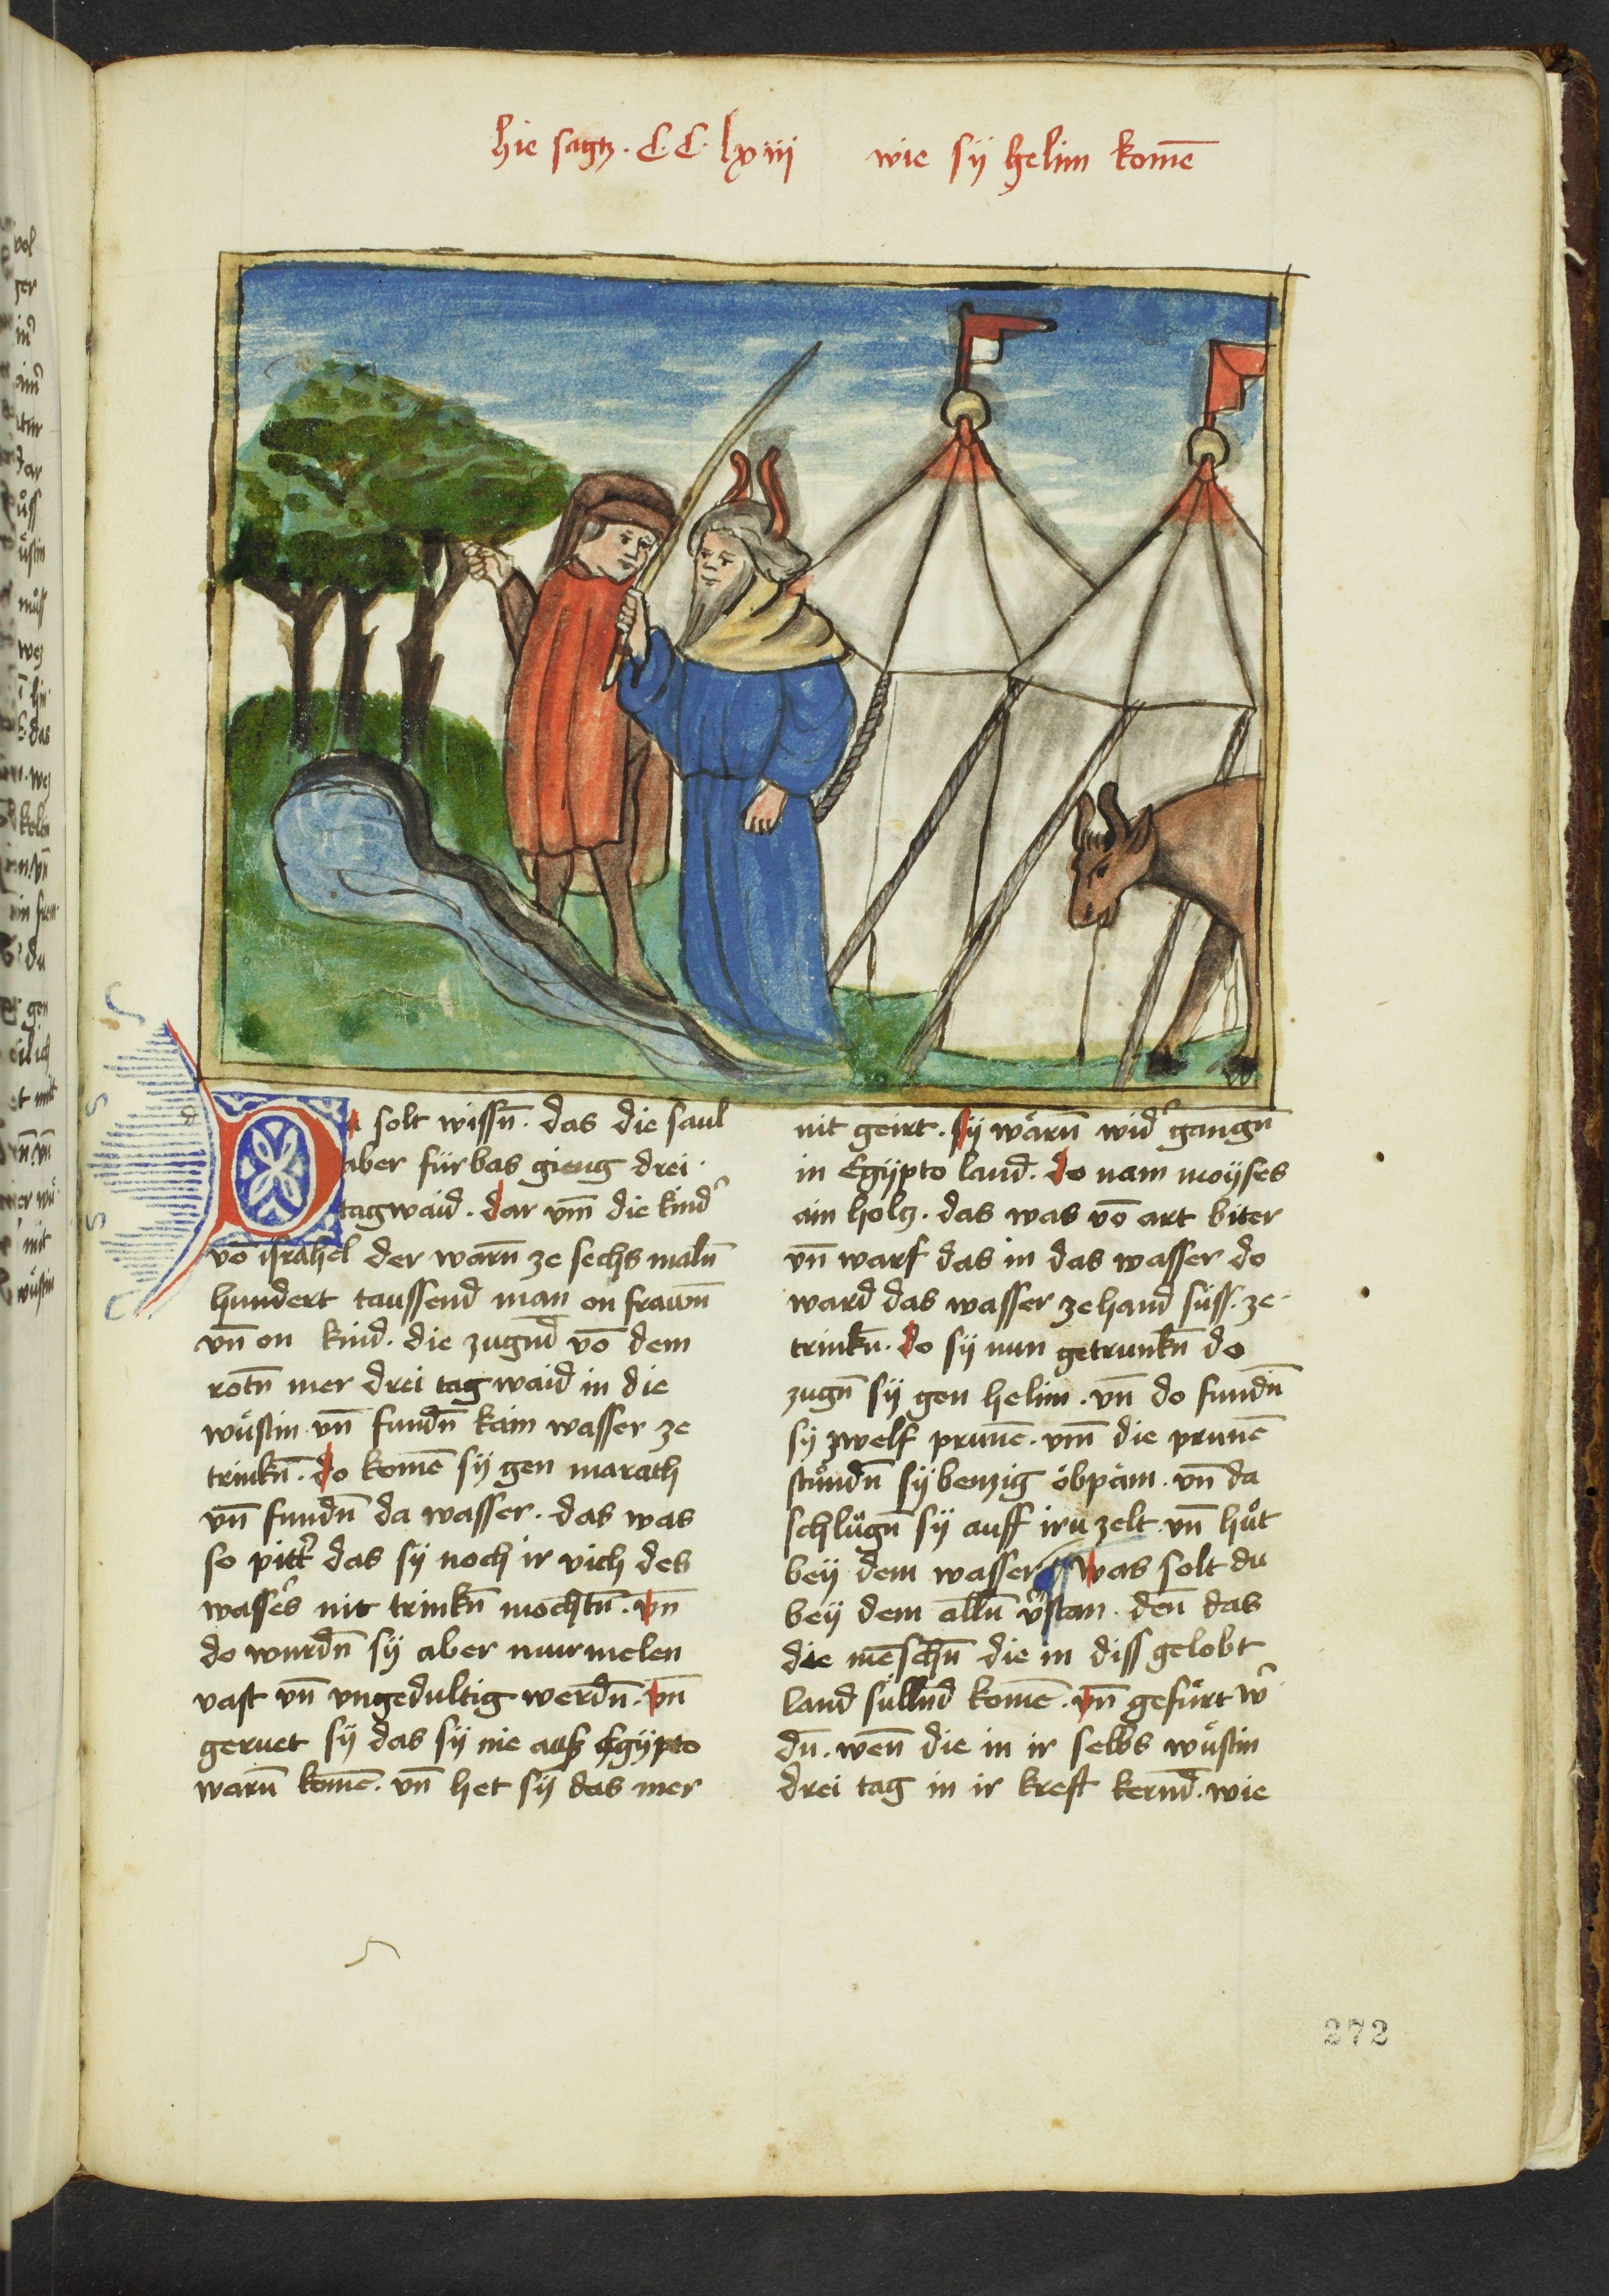 hie sagtz · C · C · lxviij wie sy helim komē
Du solt wissn̄ · das die saul
aber fürbas gieng drei ·
tagwaid · dar vm̄ die kindˀ
vō israhel der warn̄ ze sechs maln̄
hundert taussend man on frawn̄
vn̄ on kind · die zugnd̄ vō dem
rotn̄ mer drei tag waid in die
wuͤstin · vn̄ fundn̄ kain wasser ze
trinkn̄ · do komē sy gen marath
vn̄ fundn̄ da wasser · das was
so pittˀ das sy noch ir vich des
wassˀs nit trinkn̄ mochtn̄ · vn̄
do wurdn̄ sy aber murmelen
vast vn̄ vngedultig werdn̄ · vn̄
geruet sy das sy nie aus Egypto
warn̄ komē · vn̄ het sy das mer
nit geirt · sy waͤrn̄ widˀ gangn̄
in Egypto land · do nam moyses
ain holtz · das was vō art biter
vn̄ warf das in das wasser do
ward das wasser zehand suͤss · ze ·
trinkn̄ · do sy nun getrunkn̄ do
zugn̄ sy gen helim · vn̄ do fundn̄
sy zwelf prunē · vm̄ die prunē
stuͦndn̄ sybenzig oͤbpaͤm · vn̄ da
schluͦgn̄ sy auff iru zelt · vn̄ huͤt
bey dem wasser was solt du
bey dem alln̄ vˀstan · den̄ das
die mēschn̄ die in diss gelobt
land suͤllnd komē · vn̄ gefuͤrt wˀ
dn̄ · wen̄ die in ir selbs wuͤstin
drei tag in ir kreft kernd̄ · wie
272